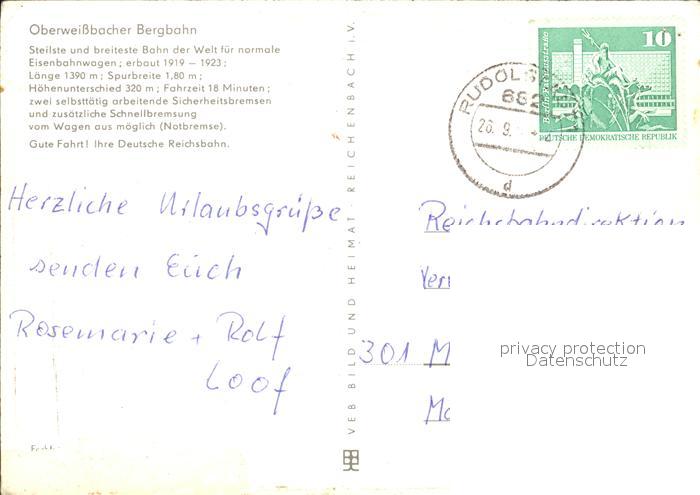 Oberweißbacher Bergbahn
Steilste und breiteste Bahn der Welt für normale
Eisenbahnwagen; erbaut 1919 – 1923;
Länge 1390 m; Spurbreite 1,80 m;
Höhenunterschied 320 m; Fahrzeit 18 Minuten;
zwei selbsttätig arbeitende Sicherheitsbremsen
und zusätzliche Schnellbremsung
vom Wagen aus möglich (Notbremse).
Gute Fahrt! Ihre Deutsche Reichsbahn.
Herzliche Urlaubsgrüße
senden Euch
Rosemarie + Rolf
Loof
VEB BILD UND HEIMAT REICHENBACH i.V.
10
DEUTSCHE DEMOKRATISCHE REPUBLIK
682
26. 9.
d
Reichsbahndirektion
301 M
privacy protection
Datenschutz